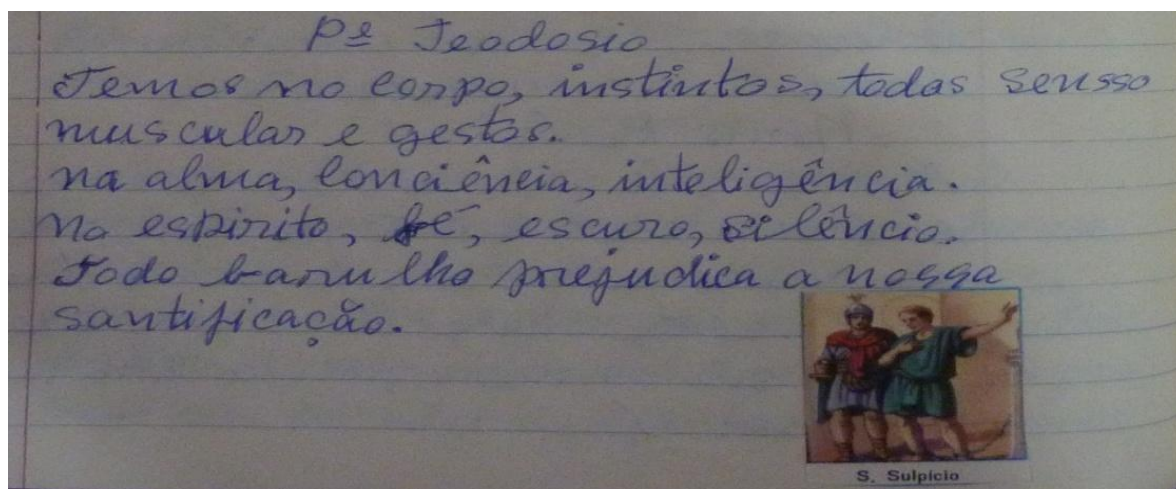 Pe Teodosio
Temos no corpo, instintos, todas sensso
muscular e gestos.
na alma, conciência, inteligência.
No espirito, fé, escuro, silêncio.
Todo barulho prejudica a nossa
santificação.
S. Sulpício